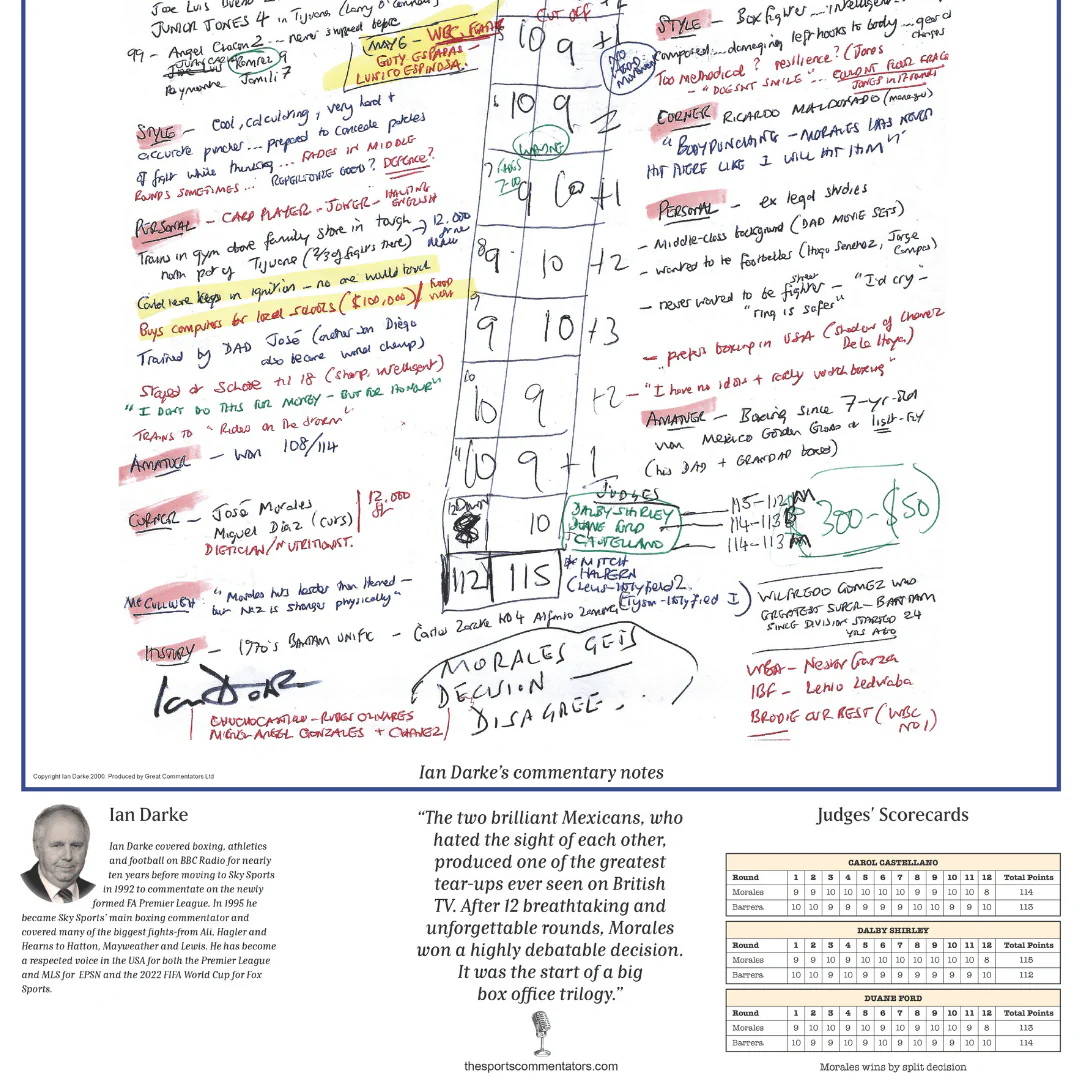 JUNIOR JONES 4 in Tijuana (Larry O'Connor)
99 - Angel Chacon 2 ... never stopped before
Ramirez 9
Jamili 7
MAY 6 - WBC FEATHER
GUTY ESPADAS -
LUISITO ESPINOSA.
STYLE - Cool, calculating, very hard +
accurate puncher ... prepared to concede patches
of fight while thinking ... FADES IN MIDDLE
ROUNDS SOMETIMES ... REPERTOIRE GOOD? DEFENCE?
PERSONAL - CARD PLAYER - JOKER - HALTING
ENGLISH
Trains in gym above family store in tough
north part of Tijuana (2/3 of fighters there) → 12,000
Could leave keys in ignition - no one would touch
Buys computers for local schools ($100,000) / FOOD
Trained by DAD José (another son Diego
also became world champ)
Stayed at School til 18 (sharp, intelligent)
"I DON'T DO THIS FOR MONEY - BUT FOR HONOUR"
TRAINS TO "Riders on the Storm"
AMATEUR - WON 108/114
CORNER - José Morales
Miguel Diaz (cuts)
DIETICIAN/NUTRITIONIST.
12,000
McCULLOUGH "Morales hits harder than Hamed -
but Naz is stronger physically"
HISTORY - 1970's BANTAM UNIFIC - Carlos Zarate KO 4 Alfonso Zamora
Ian Darke
CHUCHO CASTILLO - RUBEN OLIVARES
MIGUEL ANGEL GONZALES + CHAVEZ
CUT OFF
10 9 +1
6 10 9
7 9 10 +1
8 9 10 +2
9 9 10 +3
10 10 9 +2
11 10 9 +1
12 8 10
112 115
JUDGES
DALBY SHIRLEY 115-112 M
DUANE FORD 114-113 B
CASTELLANO 114-113 M
MITCH
HALPERN
(Lewis-Holyfield 2
Tyson-Holyfield I)
MORALES GETS
DECISION
DISAGREE.
STYLE - Box fighter ... intelligent
composed ... damaging left hooks to body ... gear changes
Too methodical? resilience? (Jones
- "DOESN'T SMILE"
CORNER RICARDO MALDONADO (manager)
"BODYPUNCHING - MORALES HAS NEVER
HIT THERE LIKE I WILL HIT HIM"
PERSONAL - ex legal studies
- Middle-class background (DAD MOVIE SETS)
- wanted to be footballer (Hugo Sanchez, Jorge
Campos)
- never wanted to be street fighter - "I'd cry" -
"ring is safer"
- prefers boxing in USA (shadow of Chavez
De La Hoya)
- "I have no idols + really watch boxing"
AMATEUR - Boxing since 7-yr-old
won Mexico Golden Gloves at light-fly
(his DAD + GRANDAD boxed)
300 - $50
WILFREDO GOMEZ WHO
GREATEST SUPER-BANTAM
SINCE DIVISION STARTED 24
YRS AGO
WBA - Nestor Garza
IBF - Lehlo Ledwaba
BRODIE OUR BEST (WBC
NO 1)
Copyright Ian Darke 2000, Produced by Great Commentators Ltd
Ian Darke's commentary notes
Ian Darke
Ian Darke covered boxing, athletics
and football on BBC Radio for nearly
ten years before moving to Sky Sports
in 1992 to commentate on the newly
formed FA Premier League. In 1995 he
became Sky Sports' main boxing commentator and
covered many of the biggest fights-from Ali, Hagler and
Hearns to Hatton, Mayweather and Lewis. He has become
a respected voice in the USA for both the Premier League
and MLS for EPSN and the 2022 FIFA World Cup for Fox
Sports.
"The two brilliant Mexicans, who
hated the sight of each other,
produced one of the greatest
tear-ups ever seen on British
TV. After 12 breathtaking and
unforgettable rounds, Morales
won a highly debatable decision.
It was the start of a big
box office trilogy."
thesportscommentators.com
Judges' Scorecards
CAROL CASTELLANO
Round 1 2 3 4 5 6 7 8 9 10 11 12 Total Points
Morales 9 9 10 10 10 10 10 9 9 10 10 8 114
Barrera 10 10 9 9 9 9 9 10 10 9 9 10 113
DALBY SHIRLEY
Round 1 2 3 4 5 6 7 8 9 10 11 12 Total Points
Morales 9 9 10 9 10 10 10 10 10 10 10 8 115
Barrera 10 10 9 10 9 9 9 9 9 9 9 10 112
DUANE FORD
Round 1 2 3 4 5 6 7 8 9 10 11 12 Total Points
Morales 9 10 10 9 10 9 10 9 10 10 9 8 113
Barrera 10 9 9 10 9 10 9 10 9 9 10 10 114
Morales wins by split decision